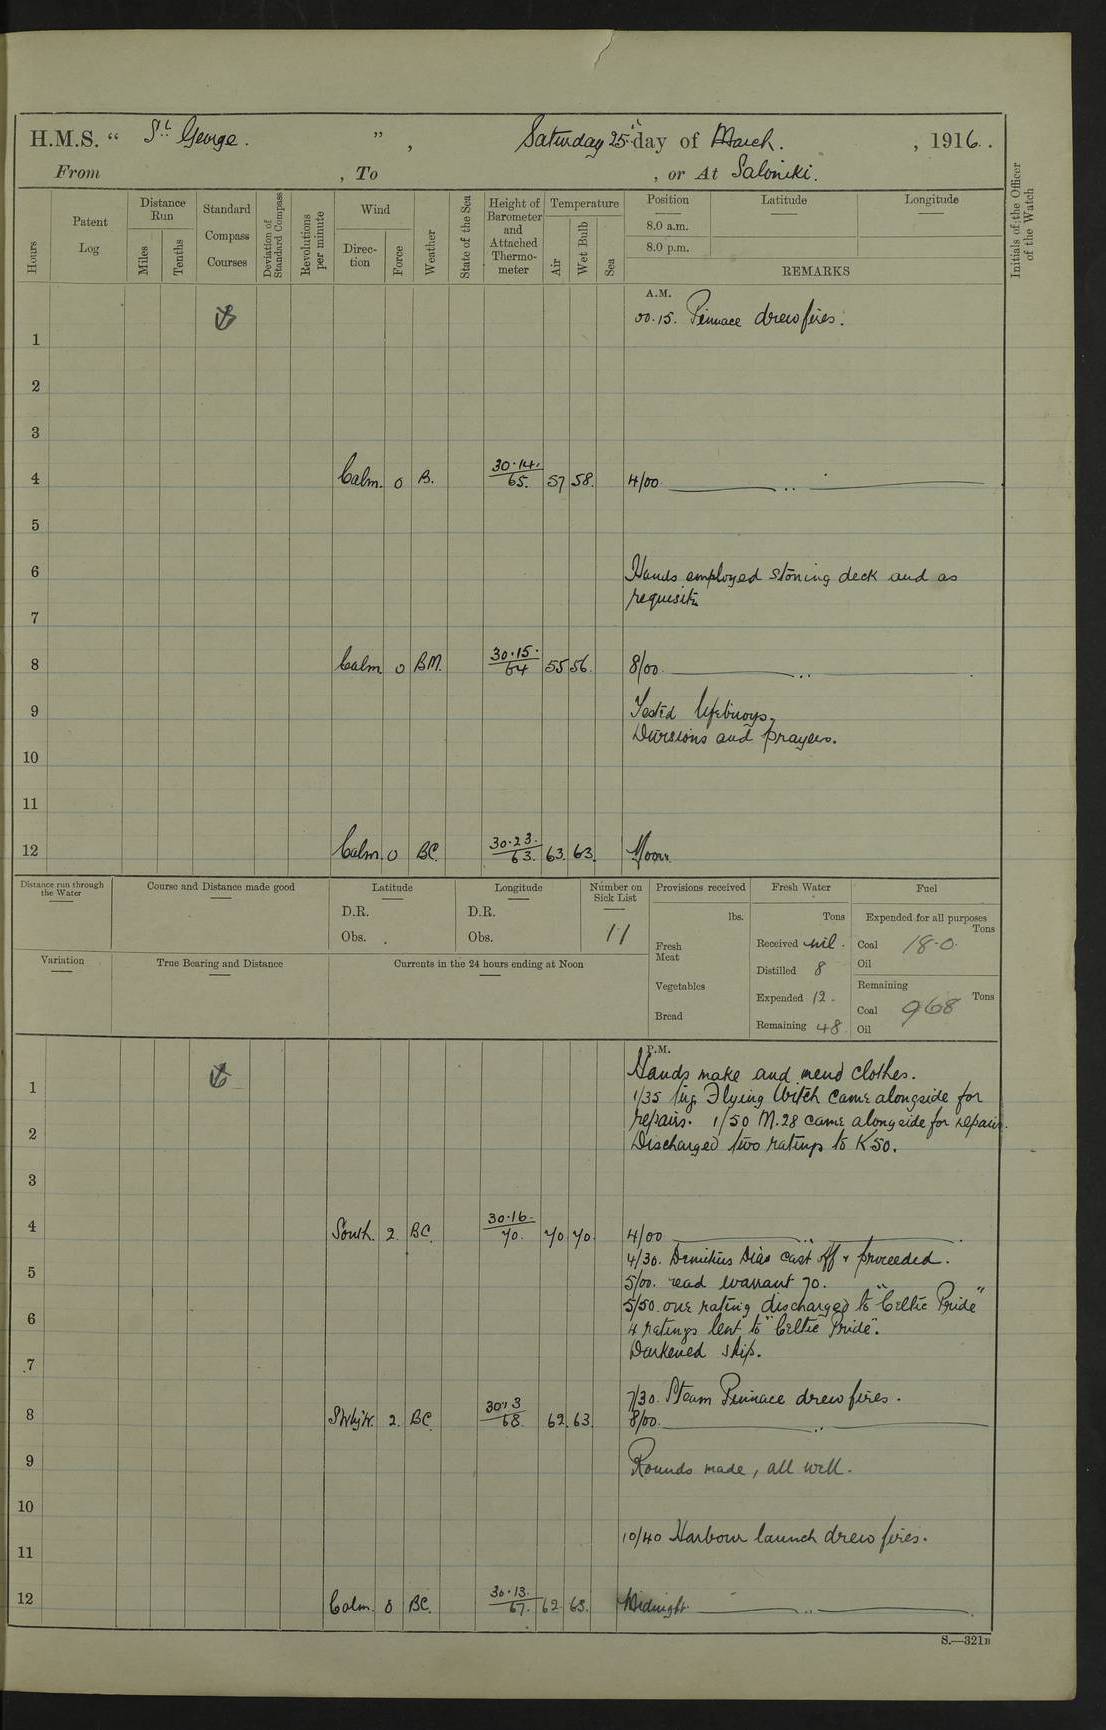 H.M.S. " St. George. ", Saturday 25th day of March. , 1916.
From , To , or At Saloniki.
Hours
Patent Log
Distance Run
Miles
Tenths
Standard Compass Courses
Deviation of Standard Compass
Revolutions per minute
Wind
Direc-tion
Force
Weather
State of the Sea
Height of Barometer and Attached Thermo-meter
Temperature
Air
Wet Bulb
Sea
Position Latitude Longitude
8.0 a.m.
8.0 p.m.
REMARKS
Initials of the Officer of the Watch
A.M.
00.15. Pinnace drew fires.
1
2
3
4 Calm. 0 B. 30.14. 65. 57 58. 4/00
5
6 Hands employed stoning deck and as
requisite
7
8 Calm 0 BM. 30.15. 64 55 56. 8/00
9 Tested lifebuoys.
Divisions and prayers.
10
11
12 Calm. 0 BC. 30.23. 63. 63. 63. Noon.
Distance run through the Water
Course and Distance made good
Latitude
D.R.
Obs.
Longitude
D.R.
Obs.
Number on Sick List
11
Provisions received
lbs.
Fresh Meat
Vegetables
Bread
Fresh Water
Tons
Received nil.
Distilled 8
Expended 12.
Remaining 48
Fuel
Expended for all purposes
Tons
Coal 18.0
Oil
Remaining
Tons
Coal 968
Oil
Variation
True Bearing and Distance
Currents in the 24 hours ending at Noon
P.M.
Hands make and mend clothes.
1 1/35 Tug Flying Witch came alongside for
repairs. 1/50 M.28 came alongside for repairs.
2 Discharged two ratings to K50.
3
4 South. 2. BC. 30.16. 70. 70 70. 4/00
4/30. Demitrius Dias cast off & proceeded.
5 5/00. read warrant 70.
5/50. one rating discharged to "Celtic Pride"
6 4 ratings lent to "Celtic Pride".
Darkened ship.
7
7/30. Steam Pinnace drew fires.
8 SWbyW. 2. BC. 68. 62. 63. 8/00.
9 Rounds made, all well.
10
10/40 Harbour launch drew fires.
11
12 Calm. 0 BC. 30.13. 67. 62 63. Midnight
S.—321B